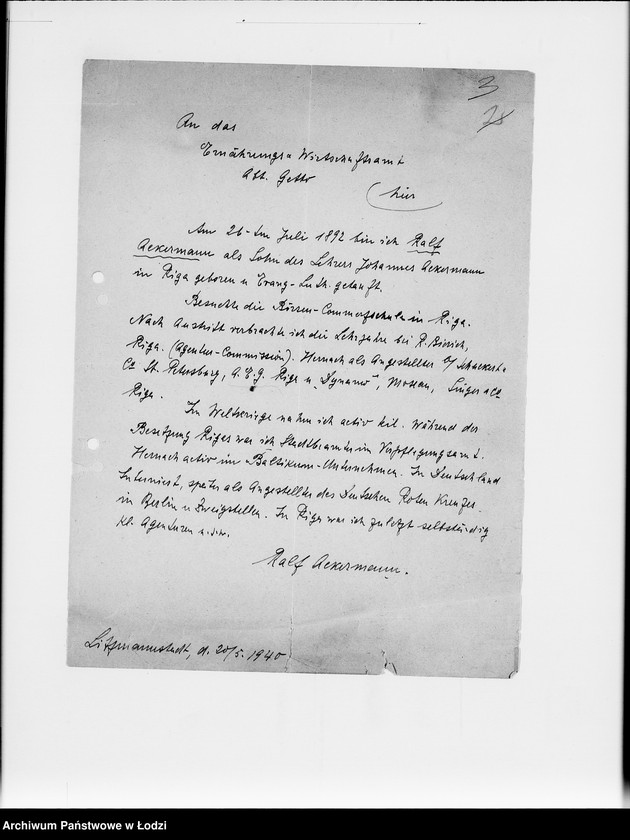 3
78
An das
Ernährungs u Wirtschaftsamt
Abt. Getto
hier
Am 26-ten Juli 1892 bin ich Ralf
Ackermann als Sohn des Lehrers Johannes Ackermann
in Riga geboren u Evang-Luth. getauft.
Besuchte die Börsen-Commerzschule in Riga.
Nach Austritt verbrachte ich die Lehrjahre bei R.
Riga. (Agentur-Commission). Hernach als Angestellter b/ Schuckert u
Co St. Petersburg, A.E.G. Riga u "Dynamo", Moscau, Singer u Co
Riga.
Im Weltkriege nahm ich activ teil. Während der
Besetzung Rigas war ich Stadtbeamter im Verpflegungsamt.
Hernach activ im Baltikum-Unternehmen. In Deutschland
Interniert, später als Angestellter des Deutschen Roten Kreuzes
in Berlin u Zweigstellen. In Riga war ich zuletzt selbständig
Kl. Agenturen u.s.w.
Ralf Ackermann.
Litzmannstadt, d. 20/5. 1940
Archiwum Państwowe w Łodzi